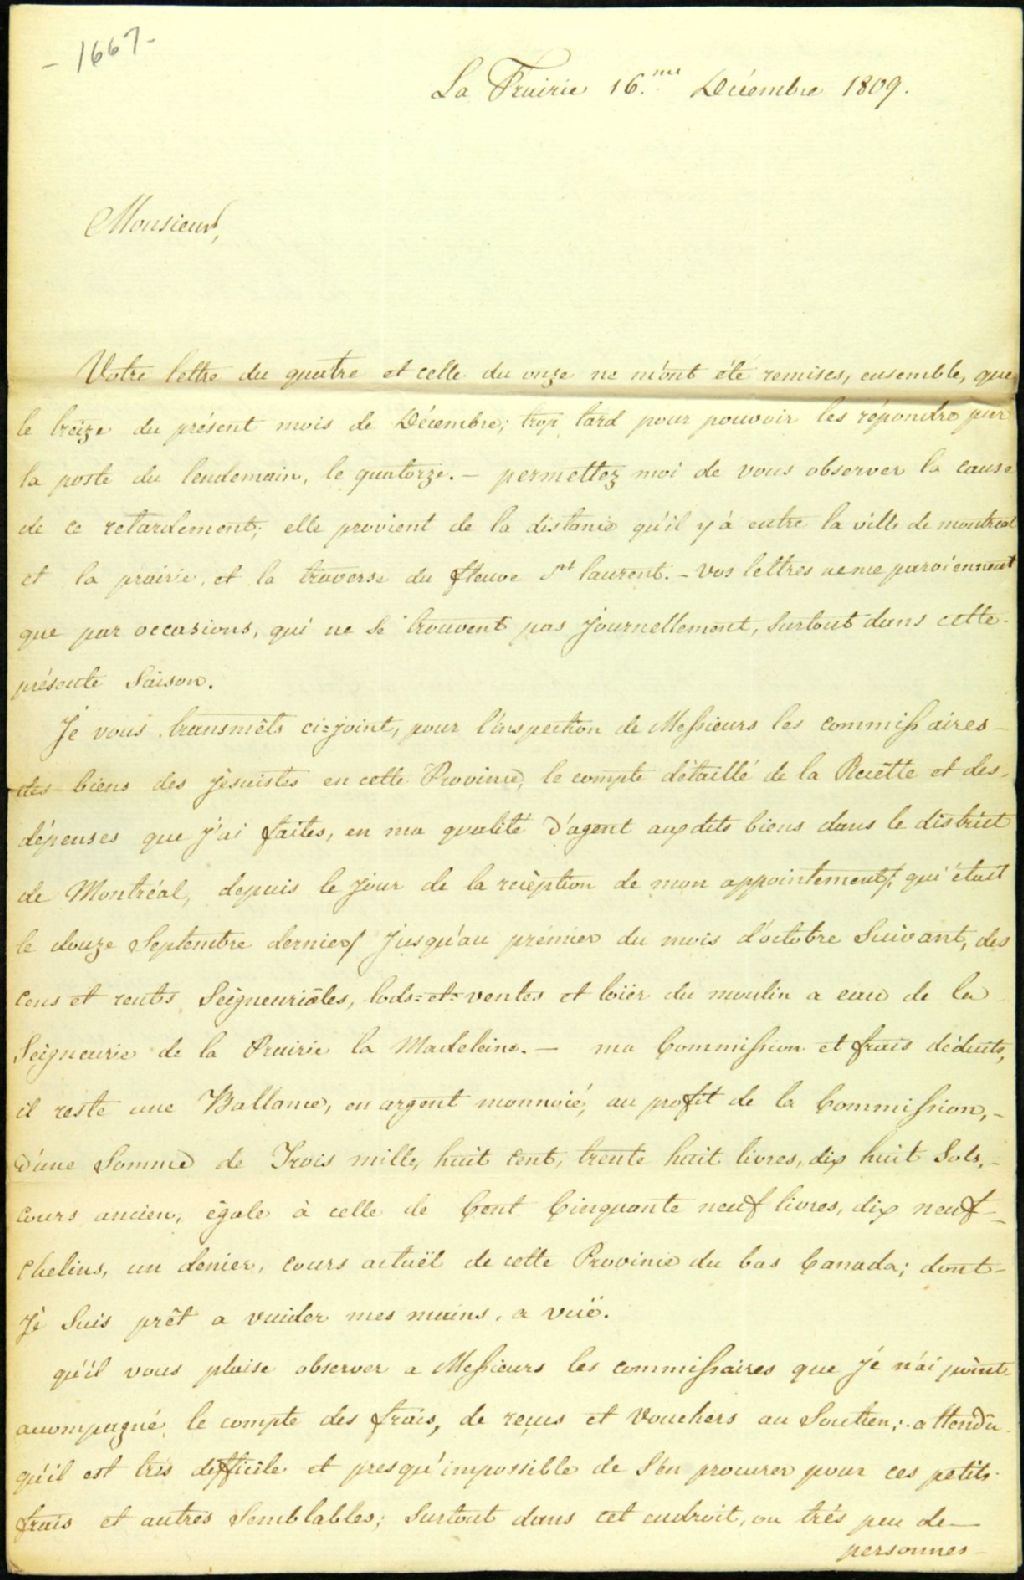 - 1667-
La Prairie 16.me Décembre 1809.
Monsieur,
Votre lettre du quatre et celle du onze ne m'ont été remises, ensemble, que
le treize du présent mois de Décembre; trop tard pour pouvoir les répondre par
la poste du lendemain, le quatorze. - permettez moi de vous observer la cause
de ce retardement; elle provient de la distance qu'il y à entre la ville de montreal
et la prairie, et la traverse du fleuve St laurent. - Vos lettres ne me parviennent
que par occasions, qui ne se trouvent pas journellement, surtout dans cette
présente Saison.
Je vous transmèts ci=joint, pour l'inspection de Messieurs les commissaires
des biens des Jésuistes en cette Province, le compte détaillé de la Recètte et des
dépenses que j'ai faites, en ma qualité d'agent auxdits biens dans le district
de Montréal, depuis le jour de la recèption de mon appointement, qui était
le douze Septembre dernier, jusqu'au prémier du mois d'octobre Suivant, des
cens et rentes Seigneuriales, lods=et=ventes et loièr du moulin a eau de la
Seigneurie de la Prairie la Madeleine. - ma Commission et frais déduits,
il reste une Ballance, en argent monnoié, au profit de la Commission, -
d'une Somme de Trois mille, huit Cent, trente huit livres, dix huit Sols, -
cours ancien, égale à celle de Cent Cinquante neuf livres, dix neuf -
Chelins, un denier, cours actuël de cette Province du bas Canada; dont -
Je Suis prêt a vuider mes mains, a vuë.
qu'il vous plaise observer a Messieurs les commissaires que Je n'ai point
accompagné, le compte des frais, de reçus et Vouchers au Soutien; attendu
qu'il est très difficile et presqu'impossible de S'en procurer pour ces petits
frais et autres Semblables; Surtout dans cet endroit, ou très peu de -
personnes